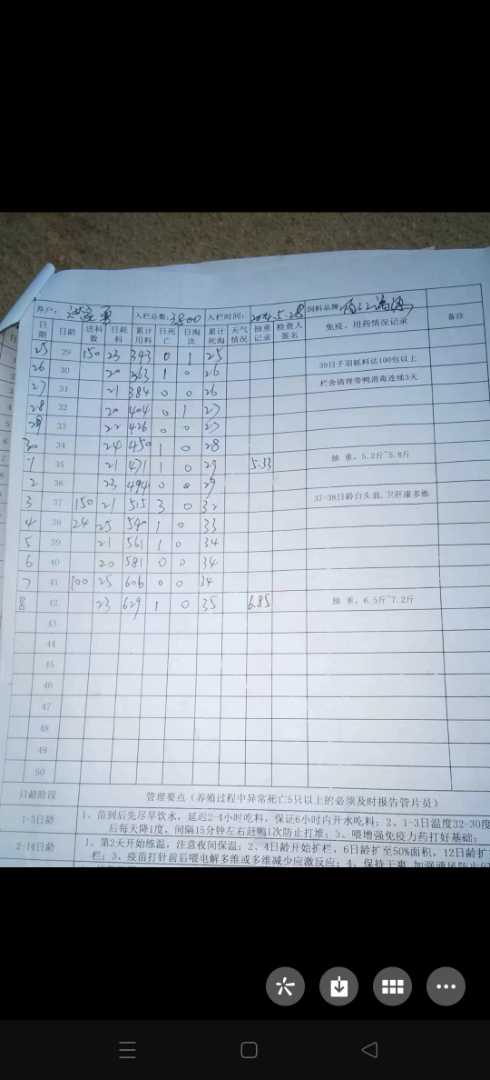 养户: 入栏总数: 3800 入栏时间: 2024.5.28 饲料品牌:
日期 日龄 进料数 日耗料 累计用料 日死亡 日淘汰 累计死淘 天气情况 抽重记录 检查人签名 免疫、用药情况记录 备注
25 29 150 23 343 0 1 25
26 30 20 363 1 0 26 30日子羽耗料达100包以上
27 31 21 384 0 0 26 栏舍清理带鸭消毒连续3天
28 32 20 404 0 1 27
29 33 22 426 0 0 27
30 34 24 450 1 0 28
1 35 21 471 1 0 29 5.33 抽重,5.2斤~5.8斤
2 36 23 494 0 0 29
3 37 150 21 515 3 0 32 37-38日龄白头翁,
4 38 24 25 540 1 0 33
5 39 21 561 1 0 34
6 40 20 581 0 0 34
7 41 100 25 606 0 0 34
8 42 23 629 1 0 35 6.85 抽重,6.5斤~7.2斤
43
44
45
46
47
48
49
50
日龄阶段 管理要点(养殖过程中异常死亡5只以上的必须及时报告管片员)
1-3日龄 1、苗到后先尽早饮水,延迟2-4小时吃料,保证6小时内开水吃料;2、1-3日温度32-30度
后每天降1度,间隔15分钟左右赶鸭1次防止打堆;3、喂增强免疫力药打好基础;
2-14日龄 1、第2天开始练温,注意夜间保温;2、4日龄开始扩栏,6日龄扩至50%面积,12日龄扩
栏;3、疫苗打针前后喂电解多维或多维减少应激反应;4、保持干爽,加强通风防止